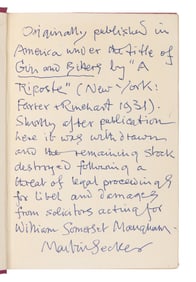 Originally published in
America under the title of
Gin and Bitters by "A
Riposte" (New York:
Farrar & Rinehart 1931).
Shortly after publication
here it was withdrawn
and the remaining stock
destroyed following a
threat of legal proceedings
for libel and damages
from solicitors acting for
William Somerset Maugham.
Martin Secker